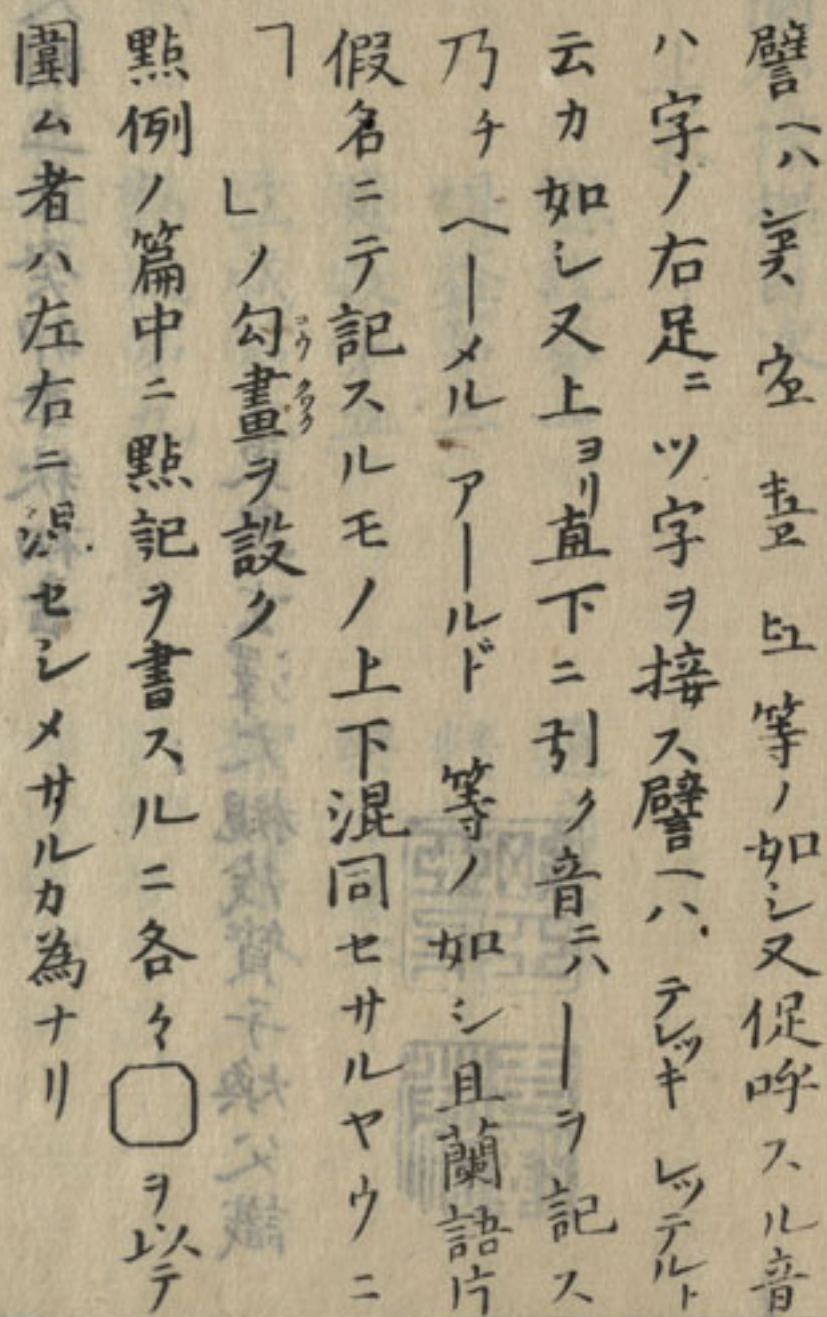 譬ヘハ 等ノ如シ又促呼スル音
ハ字ノ右足ニツ字ヲ接ス譬ヘハ、テレッキ レッテルト
云カ如シ又上ヨリ直下ニ引ク音ニハーヲ記ス
乃チ ヘーメル アールド 等ノ如シ且蘭語片
假名ニテ記スルモノ上下混同セサルヤウニ
「 」ノ勾畫ヲ設ク
コウ クワク
點例ノ篇中ニ點記ヲ書スルニ各々 ヲ以テ
圍ム者ハ左右ニ混セシメサルカ為ナリ